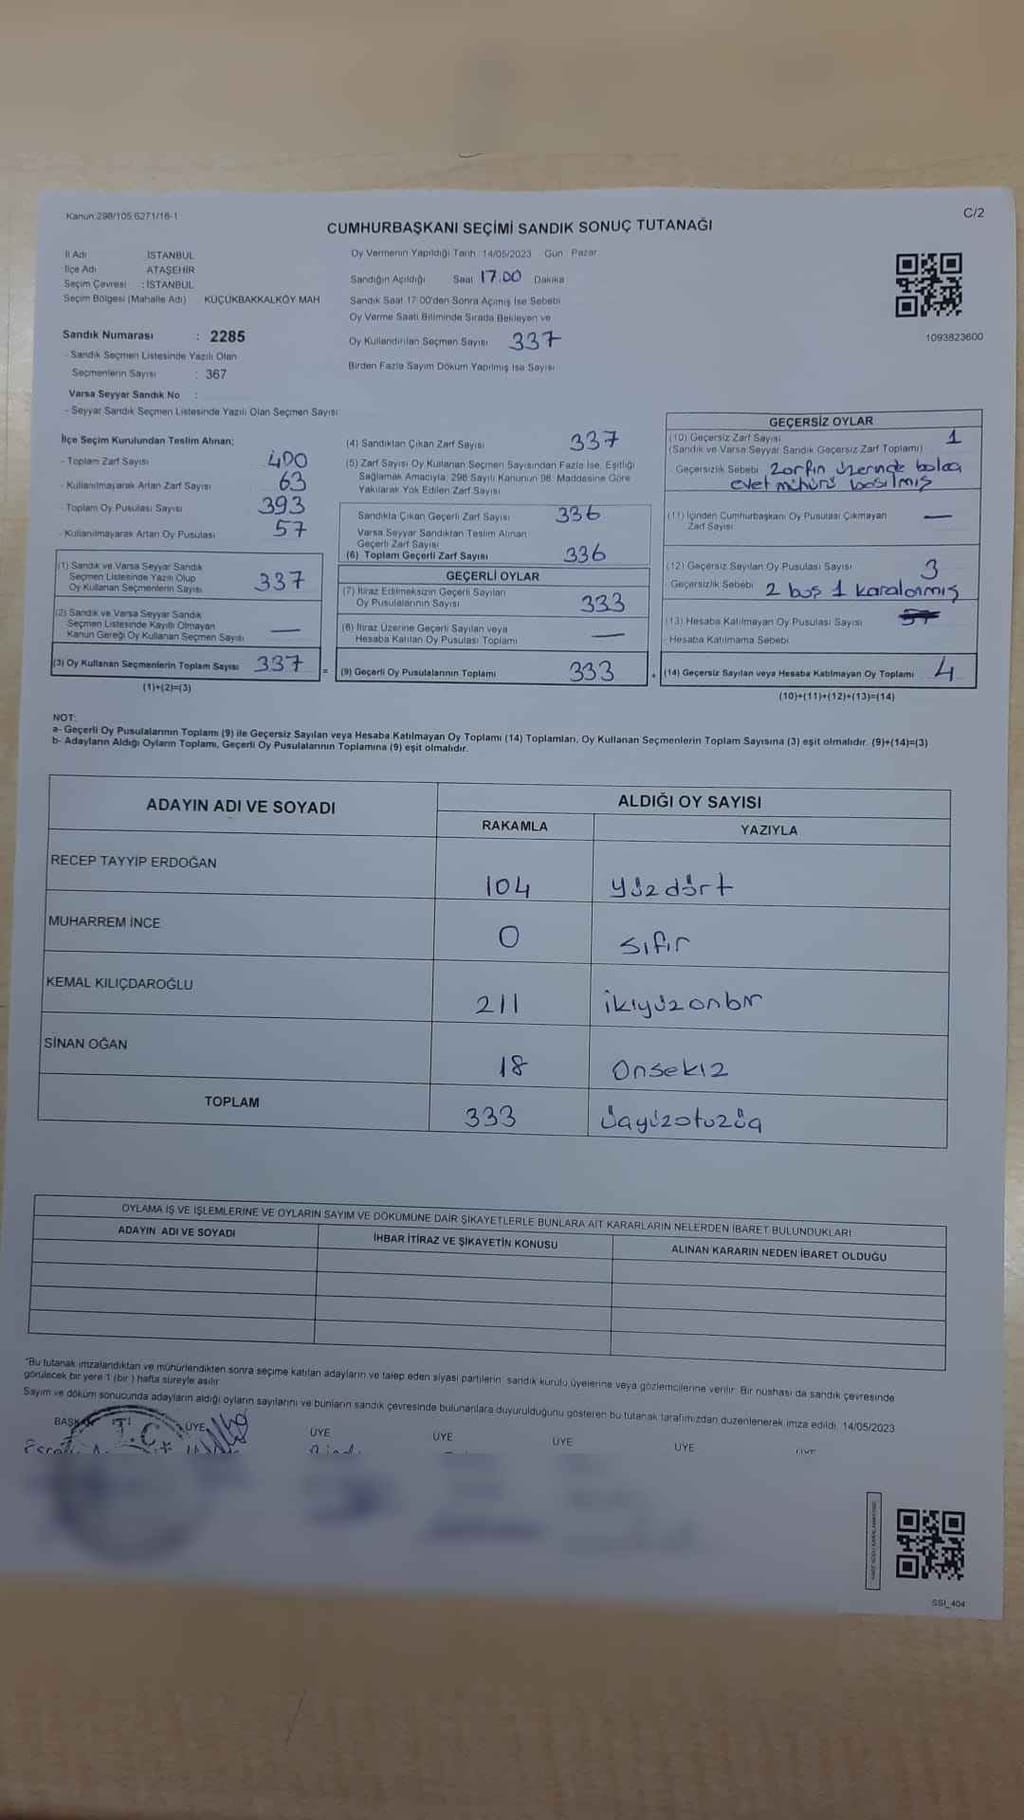 Kanun:298/105,6271/16-1
C/2
CUMHURBAŞKANI SEÇİMİ SANDIK SONUÇ TUTANAĞI
İl Adı : İSTANBUL
İlçe Adı : ATAŞEHİR
Seçim Çevresi : İSTANBUL
Seçim Bölgesi (Mahalle Adı) KÜÇÜKBAKKALKÖY MAH
Sandık Numarası : 2285
- Sandık Seçmen Listesinde Yazılı Olan
Seçmenlerin Sayısı : 367
Varsa Seyyar Sandık No :
- Seyyar Sandık Seçmen Listesinde Yazılı Olan Seçmen Sayısı
Oy Vermenin Yapıldığı Tarih : 14/05/2023 Gün : Pazar
Sandığın Açıldığı Saat 17.00 Dakika
Sandık Saat 17:00'den Sonra Açılmış İse Sebebi
Oy Verme Saati Bitiminde Sırada Bekleyen ve
Oy Kullandırılan Seçmen Sayısı 337
Birden Fazla Sayım Döküm Yapılmış İse Sayısı
1093823600
İlçe Seçim Kurulundan Teslim Alınan;
- Toplam Zarf Sayısı 400
- Kullanılmayarak Artan Zarf Sayısı 63
- Toplam Oy Pusulası Sayısı 393
- Kullanılmayarak Artan Oy Pusulası 57
(1) Sandık ve Varsa Seyyar Sandık
Seçmen Listesinde Yazılı Olup
Oy Kullanan Seçmenlerin Sayısı 337
(2) Sandık ve Varsa Seyyar Sandık
Seçmen Listesinde Kayıtlı Olmayan
Kanun Gereği Oy Kullanan Seçmen Sayısı —
(3) Oy Kullanan Seçmenlerin Toplam Sayısı 337
(1)+(2)=(3)
(4) Sandıktan Çıkan Zarf Sayısı 337
(5) Zarf Sayısı Oy Kullanan Seçmen Sayısından Fazla İse, Eşitliği
Sağlamak Amacıyla, 298 Sayılı Kanunun 98. Maddesine Göre
Yakılarak Yok Edilen Zarf Sayısı
Sandıkta Çıkan Geçerli Zarf Sayısı 336
Varsa Seyyar Sandıktan Teslim Alınan
Geçerli Zarf Sayısı
(6) Toplam Geçerli Zarf Sayısı 336
GEÇERLİ OYLAR
(7) İtiraz Edilmeksizin Geçerli Sayılan
Oy Pusulalarının Sayısı 333
(8) İtiraz Üzerine Geçerli Sayılan veya
Hesaba Katılan Oy Pusulası Toplamı —
= (9) Geçerli Oy Pusulalarının Toplamı 333
GEÇERSİZ OYLAR
(10) Geçersiz Zarf Sayısı 1
(Sandık ve Varsa Seyyar Sandık Geçersiz Zarf Toplamı)
Geçersizlik Sebebi Zarfın üzerinde bolca
evet mührü basılmış
(11) İçinden Cumhurbaşkanı Oy Pusulası Çıkmayan
Zarf Sayısı —
(12) Geçersiz Sayılan Oy Pusulası Sayısı 3
- Geçersizlik Sebebi 2 boş 1 karalanmış
(13) Hesaba Katılmayan Oy Pusulası Sayısı
- Hesaba Katılmama Sebebi
+ (14) Geçersiz Sayılan veya Hesaba Katılmayan Oy Toplamı 4
(10)+(11)+(12)+(13)=(14)
NOT:
a- Geçerli Oy Pusulalarının Toplamı (9) ile Geçersiz Sayılan veya Hesaba Katılmayan Oy Toplamı (14) Toplamları, Oy Kullanan Seçmenlerin Toplam Sayısına (3) eşit olmalıdır. (9)+(14)=(3)
b- Adayların Aldığı Oyların Toplamı, Geçerli Oy Pusulalarının Toplamına (9) eşit olmalıdır.
ADAYIN ADI VE SOYADI
ALDIĞI OY SAYISI
RAKAMLA YAZIYLA
RECEP TAYYİP ERDOĞAN 104 yüzdört
MUHARREM İNCE 0 sıfır
KEMAL KILIÇDAROĞLU 211 ikiyüzonbir
SİNAN OĞAN 18 Onsekiz
TOPLAM 333 üçyüzotuzüç
OYLAMA İŞ VE İŞLEMLERİNE VE OYLARIN SAYIM VE DÖKÜMÜNE DAİR ŞİKAYETLERLE BUNLARA AİT KARARLARIN NELERDEN İBARET BULUNDUKLARI
ADAYIN ADI VE SOYADI İHBAR İTİRAZ VE ŞİKAYETİN KONUSU ALINAN KARARIN NEDEN İBARET OLDUĞU
*Bu tutanak imzalandıktan ve mühürlendikten sonra seçime katılan adayların ve talep eden siyasi partilerin sandık kurulu üyelerine veya gözlemcilerine verilir. Bir nüshası da sandık çevresinde
görülecek bir yere 1 (bir) hafta süreyle asılır.
Sayım ve döküm sonucunda adayların aldığı oyların sayılarını ve bunların sandık çevresinde bulunanlara duyurulduğunu gösteren bu tutanak tarafımızdan düzenlenerek imza edildi. 14/05/2023
BAŞK ÜYE ÜYE ÜYE ÜYE ÜYE ÜYE
T.C.
SSI_404